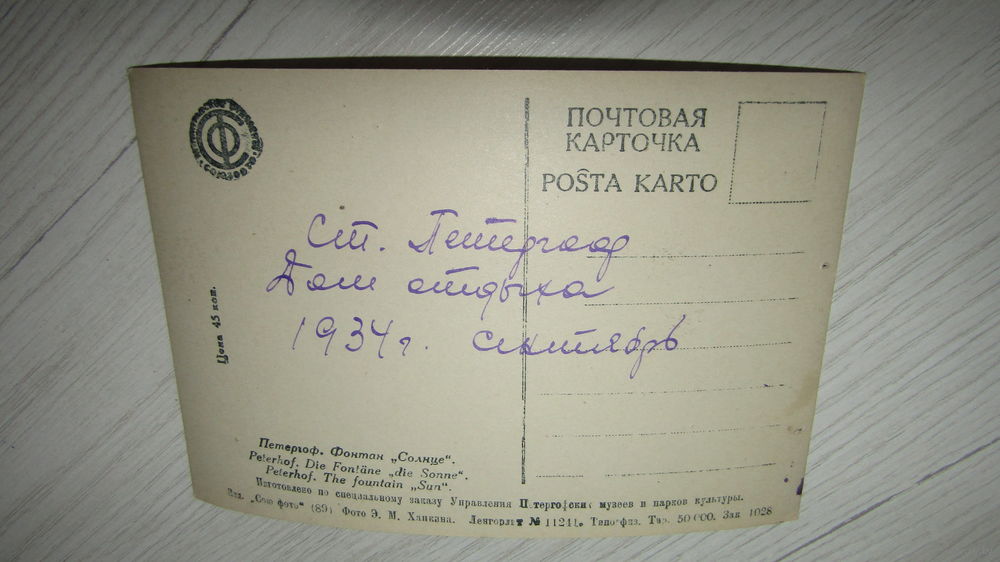 ПОЧТОВАЯ
КАРТОЧКА
POŜTA KARTO
СОЮЗФОТО
Ст. Петергоф
Дом отдыха
1934 г. сентябрь
Цена 45 коп.
Петергоф. Фонтан „Солнце“.
Peterhof. Die Fontäne „die Sonne“.
Peterhof. The fountain „Sun“.
Изготовлено по специальному заказу Управления Петергофских музеев и парков культуры.
Изд. „Союзфото“ (89) Фото Э. М. Хайкина. Ленгорлит № 11241. Типо-физ. Тир. 50 000. Зак. 1028